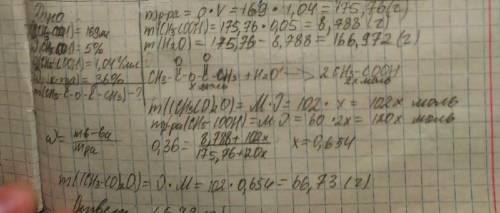 Дано
V(CH₃COOH)=169мл
ω(CH₃COOH)=5%
ρ(CH₃COOH)=1,04 г/мл
ω(к-ты)=36%
m(CH₃-C-O-C-CH₃)-?
m р-ра = ρ·V = 169·1,04 = 175,76(г)
m(CH₃COOH)=175,76·0,05=8,788(г)
m(H₂O)=175,76-8,788=166,972(г)
O O
CH₃-C-O-C-CH₃+H₂O → 2CH₃-COOH
x моль 2x моль
m((CH₃CO)₂O)=M·ν=102·x=102x моль
m р-ра(CH₃COOH)=M·ν=60·2x=120x моль
ω= mв-ва/mр-ра
0,36= 8,788+120x/175,76+120x x=0,654
m((CH₃CO)₂O)=ν·M=102·0,654=66,73(г)
Ответ